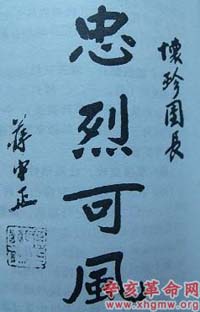 懷珍團長
忠烈可風
蔣中正
辛亥革命网
www.xhgmw.org